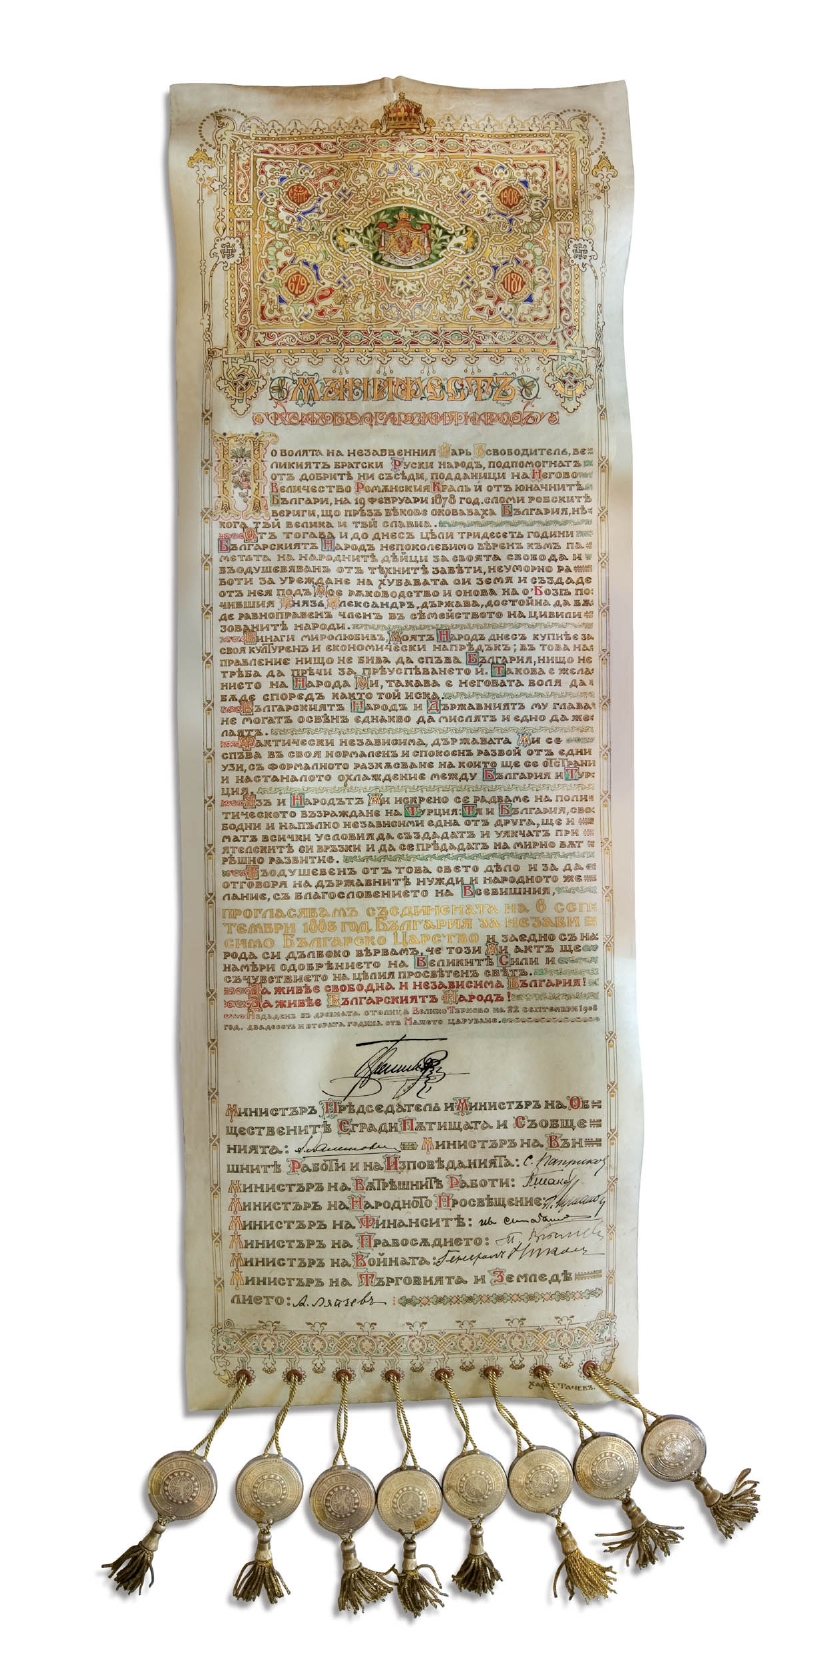 679
1187
1908
МАНИФЕСТЪ
КЪМЪ БЪЛГАРСКИЯ НАРОДЪ
По волята на незабвенния Царь Освободитель, ве-
ликиятъ братски Руски народъ, подпомогнатъ
отъ добритѣ ни съсѣди, подданици на Негово
Величество Ромѫнския Краль и отъ юначнитѣ
Българи, на 19 февруари 1878 год. сломи робскитѣ
вериги, що прѣзъ вѣкове оковаваха България, нѣ-
кога тъй велика и тъй славна.
Отъ тогава и до днесъ цѣли тридесетъ години
Българскиятъ Народъ непоколебимо вѣренъ къмъ па-
метьта на народнитѣ дѣйци за своята свобода и
въодушевяванъ отъ тѣхнитѣ завѣти, неуморно ра-
боти за уреждане на хубавата си земя и създаде
отъ нея подъ Мое рѫководство и онова на о'Бозѣ по-
чившия Князъ Александръ, държава, достойна да бѫ-
де равноправенъ членъ въ семейството на цивили-
зованитѣ народи.
Винаги миролюбивъ, Моятъ Народъ днесъ копнѣе за
своя културенъ и економически напрѣдъкъ; въ това на-
правление нищо не бива да спъва България, нищо не
трѣба да прѣчи за прѣуспѣването ѝ. Такова е жела-
нието на Народа Ми, такава е неговата воля да
бѫде споредъ както той иска.
Българскиятъ Народъ и Държавниятъ му глава
не могатъ освѣнъ еднакво да мислятъ и едно да же-
лаятъ.
Фактически независима, държавата Ми се
спъва въ своя нормаленъ и спокоенъ развой отъ едни
узи, съ формалното разкѫсване на които ще се отстрани
и настаналото охлаждение между България и Тур-
ция.
Азъ и Народътъ Ми искрено се радваме на поли-
тическото възраждане на Турция: Тя и България, сво-
бодни и напълно независими една отъ друга, ще и-
матъ всички условия да създадатъ и уякчатъ при-
ятелскитѣ си връзки и да се прѣдадатъ на мирно вѫт-
рѣшно развитие.
Въодушевенъ отъ това свето дѣло и за да
отговоря на държавнитѣ нужди и народното же-
лание, съ благословението на Всевишния,
прогласявамъ съединената на 6 Сеп-
темврий 1885 год. България за незави-
симо Българско Царство и заедно съ на-
рода си дълбоко вѣрвамъ, че този Ми актъ ще
намѣри одобрението на Великитѣ Сили и
съчувствието на цѣлия просвѣтенъ свѣтъ.
Да живѣе свободна и независима България!
Да живѣе Българскиятъ Народъ!
Издаденъ въ древната столица Велико Търново на 22 септемврий 1908
год. двадесеть и втората година отъ Нашето царуване.
Министъръ Прѣдседатель и Министъръ на Об-
ществените Сгради Пѫтищата и Съобще-
нията: А. Малиновъ Министъръ на Вън-
шнитѣ Работи и на Изповѣданията: С. Паприковъ
Министъръ на Вѫтрѣшнитѣ Работи:
Министъръ на Народното Просвѣщение:
Министъръ на Финанситѣ:
Министъръ на Правосѫдието:
Министъръ на Войната: Генералъ Николаевъ
Министъръ на Търговията и Земледѣ-
лието: А. Ляпчевъ
Хар. Тачевъ.